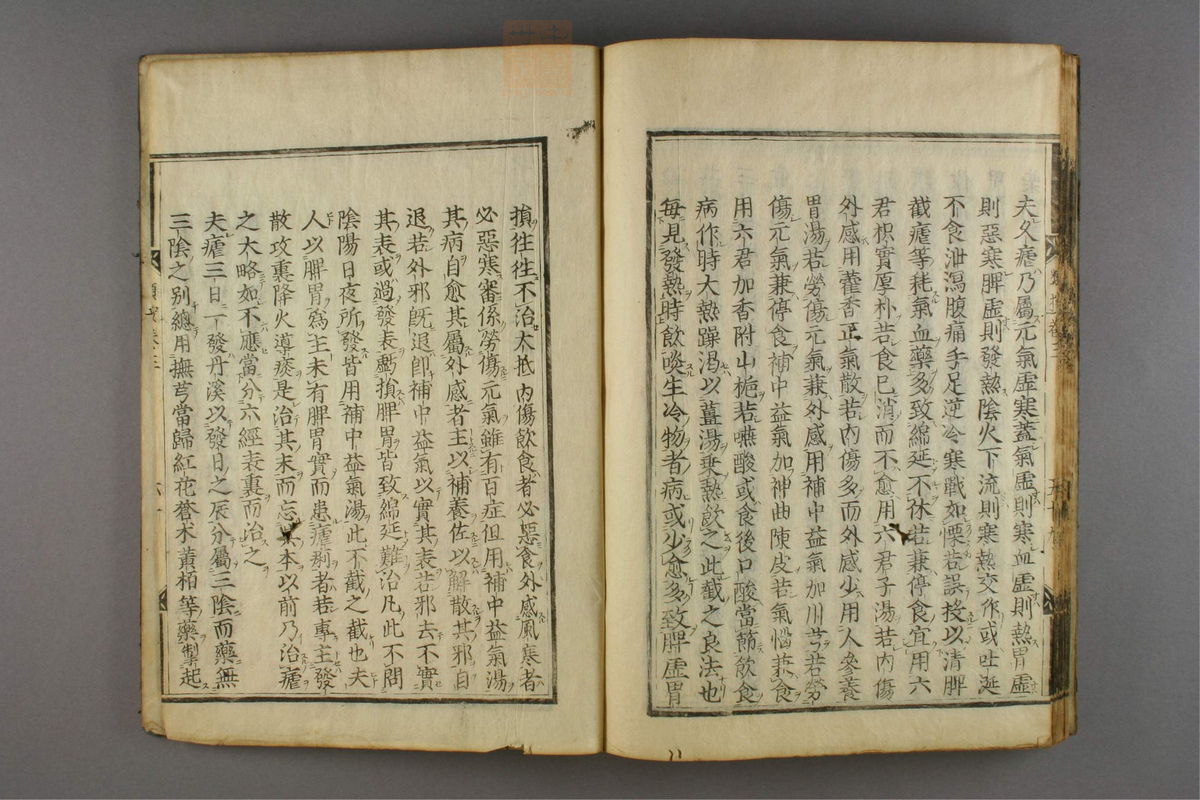 夫久瘧乃屬元氣虛寒蓋氣虛則寒血虛則熱胃虛
則惡寒脾虛則發熱陰火下流則寒熱交作或吐涎
不食泄瀉腹痛手足逆冷寒戰如慄若誤投以清脾
截瘧等耗氣血藥多致綿延不休若兼停食宜用六
君枳實厚朴若食已消而不愈用六君子湯若內傷
外感用藿香正氣散若內傷多而外感少用人參養
胃湯若勞傷元氣兼外感用補中益氣加川芎若勞
傷元氣兼停食補中益氣加神曲陳皮若氣惱兼食
用六君加香附山梔若嚥酸或食後口酸當節飲食
病作時大熱躁渴以薑湯乗熱飲之此截之良法也
每見發熱時飲啖生冷物者病或少愈多致脾虛胃
損往往不治大抵內傷飲食者必惡食外感風寒者
必惡寒審係勞傷元氣雖有百症但用補中益氣湯
其病自愈其屬外感者主以補養佐以解散其邪自
退若外邪既退即補中益氣以實其表若邪去不實
其表或過發表虧損脾胃皆致綿延難治凡此不問
陰陽日夜所發皆用補中益氣湯此不截之截也夫
人以脾胃爲主未有脾胃實而患瘧痢者若專主發
散攻裏降火導痰是治其末而忘其本以前乃治瘧
之大略如不應當分六經表裏而治之
夫瘧三日一發丹溪以發日之辰分屬三陰而藥無
三陰之別總用撫芎當歸紅花蒼朮黃柏等藥掣起